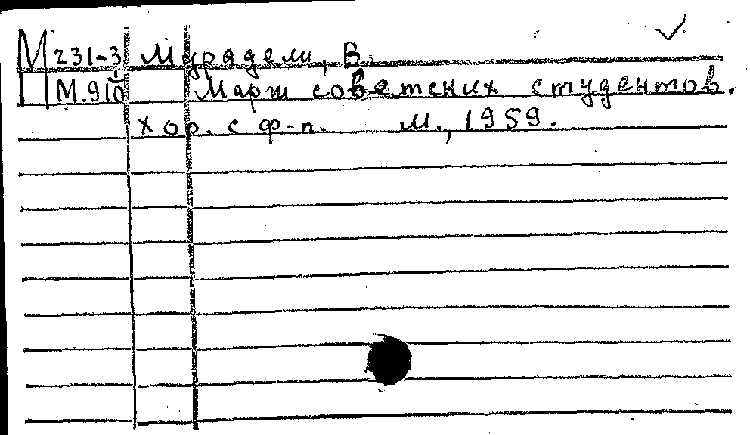 М 231-3 Мурадели, В.
М.910 Марш советских студентов.
хор. с ф-п. М., 1959.